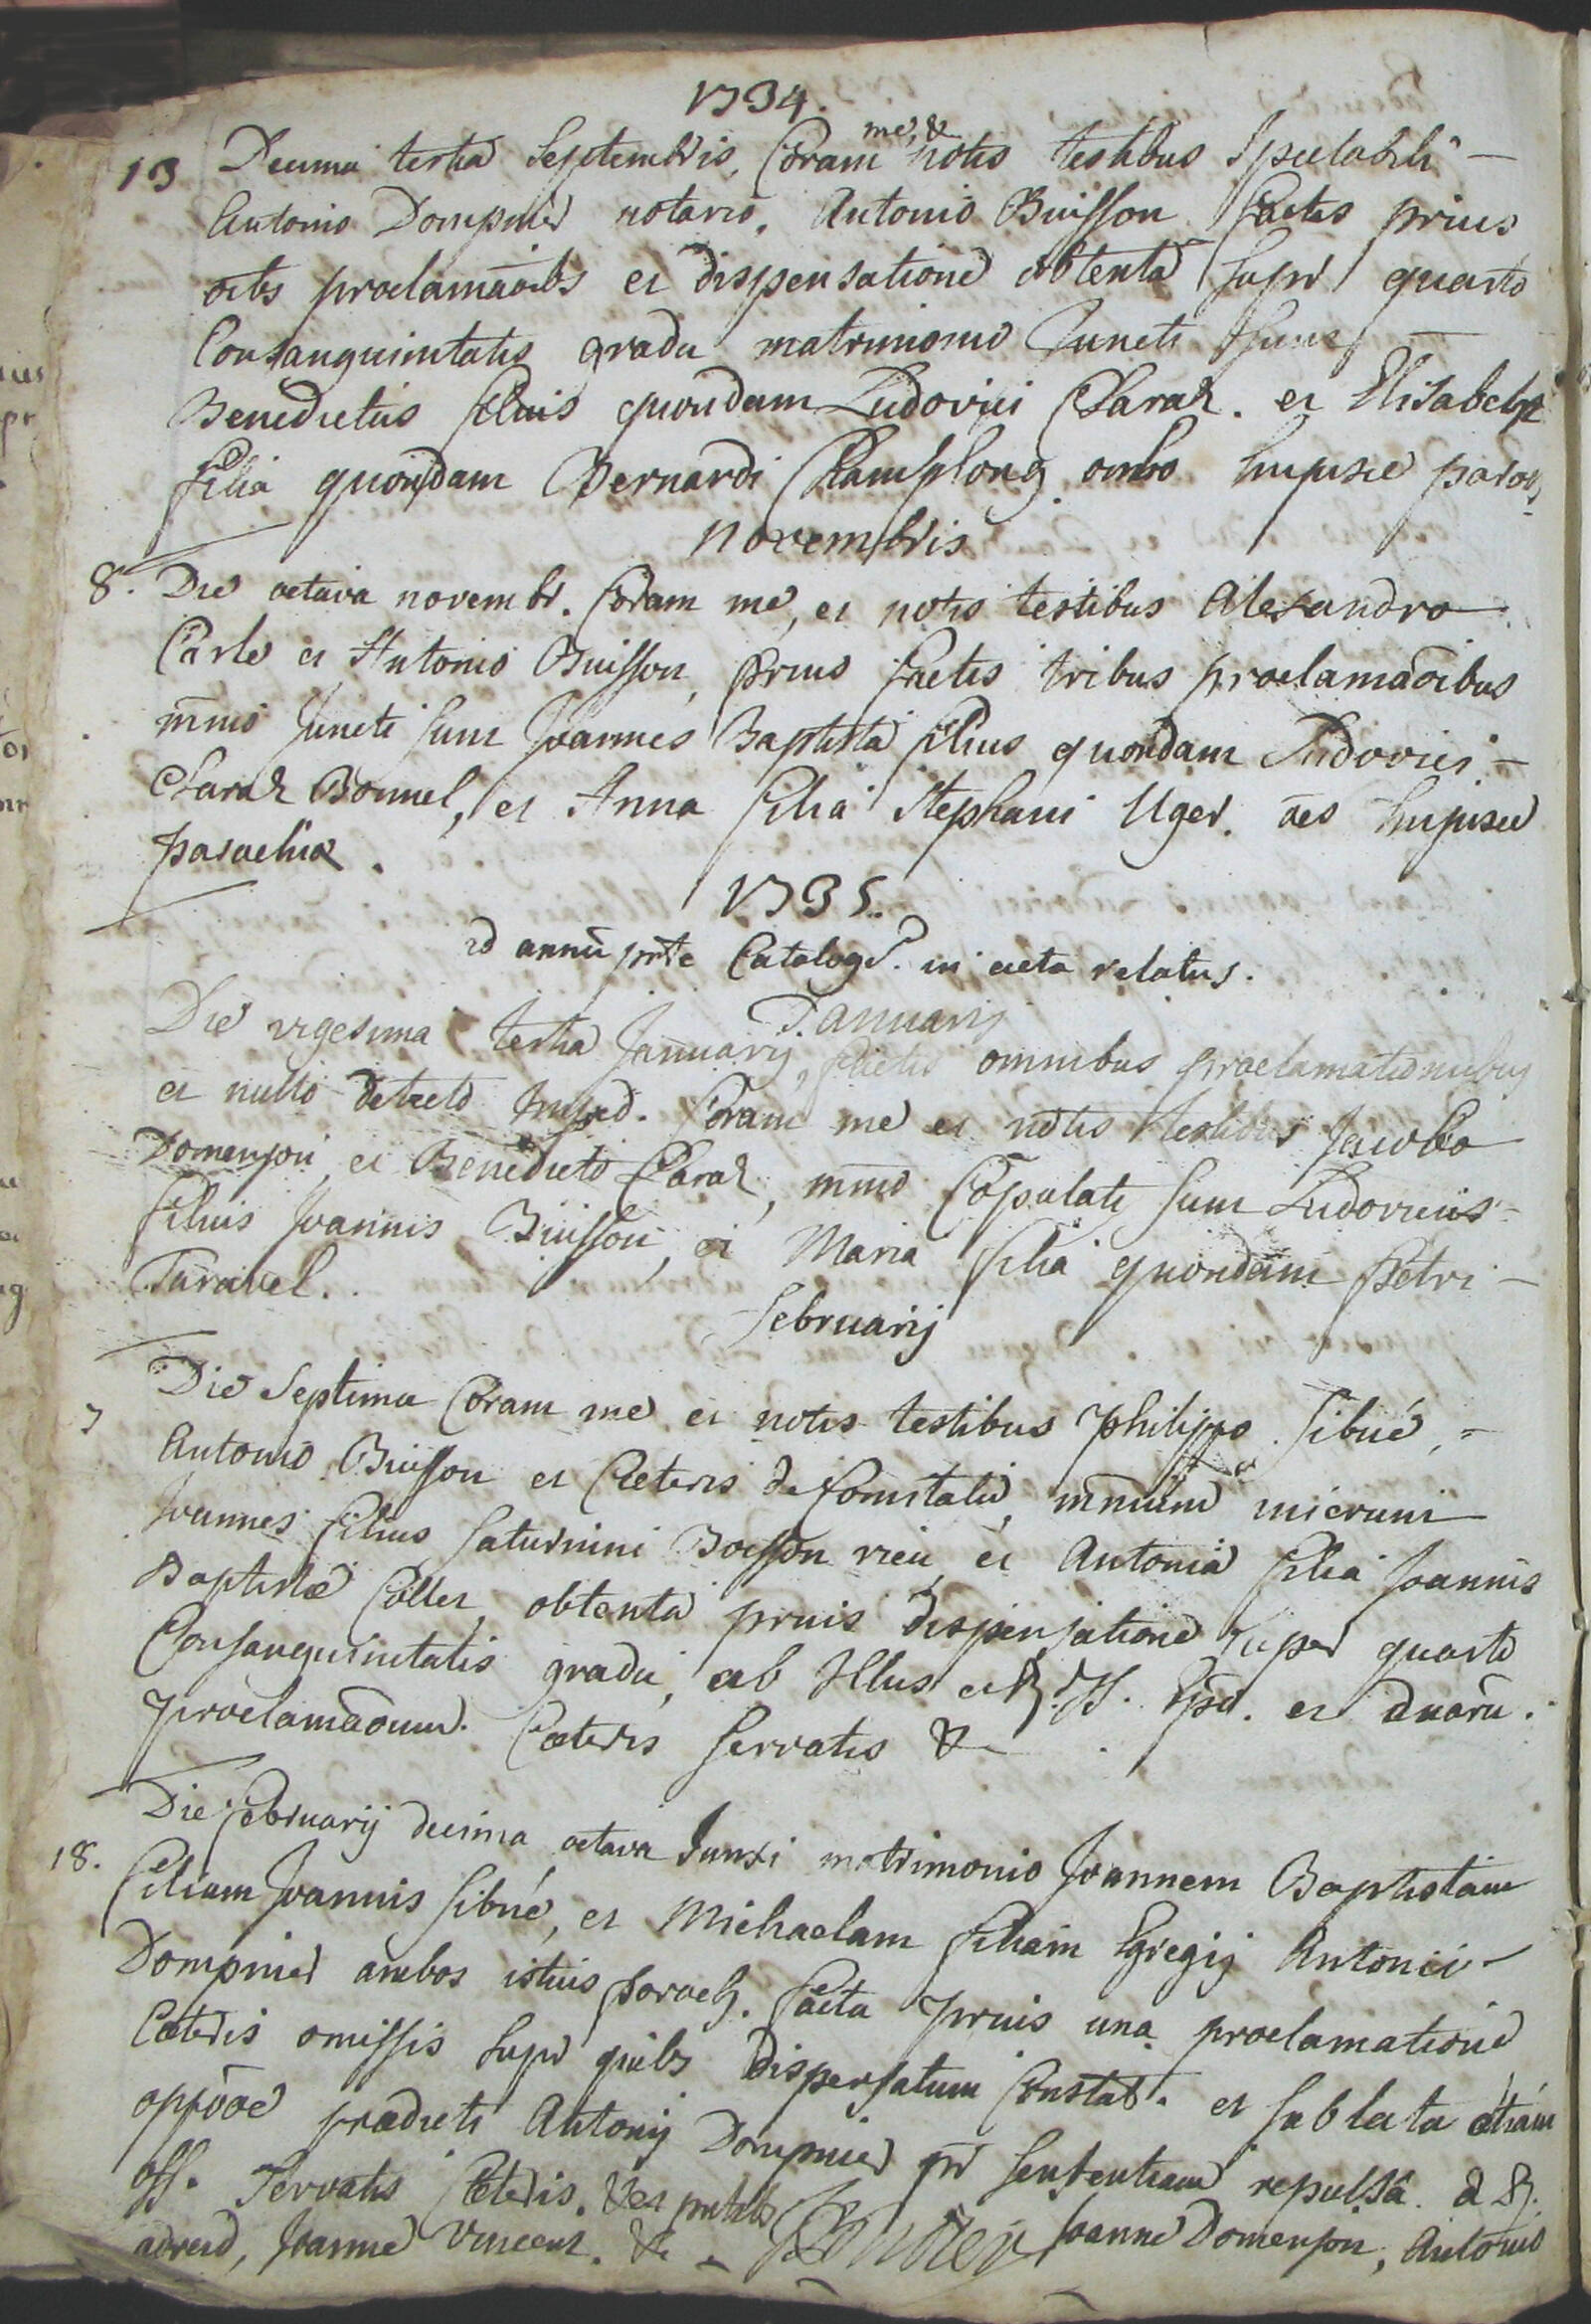 1734.
13 Decima tertia Septembris, Coram me, & notis testibus Spectabili -
Antonio Dompnier notario, Antonio Buisson factis prius
oibs proclamaoibs et dispensatione obtenta supr quarto
Consanguinitatis gradu matrimonio Juncti sunt -
Benedictus filius quondam Ludovici Charaz. et Elisabeth
filia quondam Bernardi Champlong ambo hujusce paroch
novembris
8. Die octava novembr. Coram me, et notis testibus Alexandro
Carle et Antonio Buisson, prius factis tribus proclamaoibus
mnio Juncti sunt Joannes Baptista filius quondam Ludovici -
Charaz Bonnel, et Anna filia Stephani Uger. oes hujusce
parochiæ.
1735.
id annũ prte Catalog. in acta relatus.
Januarij
Die vigesima tertia Januarij, factis omnibus proclamationibus
et nullo detecto Imped. Coram me et notis testibus Jacobo
Domenjon, et Benedicto Charaz, mnio Copulati sunt Ludovicus -
filius Joannis Buisson, et Maria filia quondam Petri -
Taravel.
februarij
7 Die Septima Coram me et notis testibus Philippo Sibué, =
Antonio Buisson et Cæteris de Comitatu, mnium inierunt
Joannes filius Saturnini Boisson rieu, et Antonia filia Joannis
Baptistæ Collet, obtenta prius dispensatione super quarto
Consanguinitatis gradu, ab Illus et R. Epo. et duarũ.
proclamaonum. Cæteris servatis &
18. Die februarij decima octava Junxi matrimonio Joannem Baptistam
filium Joannis Sibué, et Michaelam filiam Egregij Antonii -
Dompnier ambos istius paroch. facta prius una proclamatione
Cæteris omissis supr quibs dispensatum Constat. et sublata etiam
oppõoe prædicti Antonij Dompnier pr sententiam repulsa a R.
off. Servatis Cæteris. & Joanne Domenjon, Antonio
Joanne Vincent. &